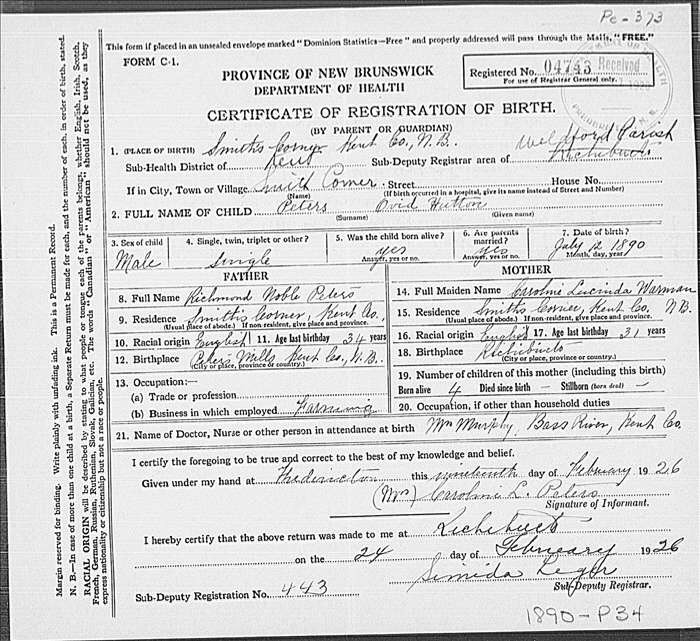 Pc-373
This form if placed in an unsealed envelope marked "Dominion Statistics—Free" and properly addressed will pass through the Mails, "FREE."
FORM C-1.
PROVINCE OF NEW BRUNSWICK
DEPARTMENT OF HEALTH
Registered No. 04743 Received
For use of Registrar General only.
CERTIFICATE OF REGISTRATION OF BIRTH.
(BY PARENT OR GUARDIAN)
1. (PLACE OF BIRTH) Smiths Corner Kent Co., N.B.
Sub-Health District of Kent Sub-Deputy Registrar area of Weldford Parish Richibucto
If in City, Town or Village Smith Corner Street House No.
(Name) (If birth occurred in a hospital, give its name instead of Street and Number)
2. FULL NAME OF CHILD Peters Ovid Hutton
(Surname) (Given name)
3. Sex of child Male
4. Single, twin, triplet or other? Single
5. Was the child born alive? yes Answer, yes or no.
6. Are parents married? yes Answer, yes or no.
7. Date of birth? July 12 1890 Month, day, year
FATHER
8. Full Name Richmond Noble Peters
9. Residence Smiths Corner, Kent Co.,
(Usual place of abode.) If non-resident, give place and province.
10. Racial origin English 11. Age last birthday 34 years
12. Birthplace Peters Mills Kent Co., N.B.
(City or place, province or country.)
13. Occupation:—
(a) Trade or profession
(b) Business in which employed Farming
MOTHER
14. Full Maiden Name Caroline Lucinda Warman
15. Residence Smiths Corner, Kent Co. N.B.
(Usual place of abode.) If non-resident, give place and province.
16. Racial origin English 17. Age last birthday 31 years
18. Birthplace Richibucto
(City or place, province or country.)
19. Number of children of this mother (including this birth)
Born alive 4 Died since birth — Stillborn (born dead) —
20. Occupation, if other than household duties
21. Name of Doctor, Nurse or other person in attendance at birth Wm Murphy, Bass River, Kent Co.
I certify the foregoing to be true and correct to the best of my knowledge and belief.
Given under my hand at Fredericton this nineteenth day of February 1926
(Mrs) Caroline L. Peters
Signature of Informant.
I hereby certify that the above return was made to me at Richibucto
on the 24 day of February 1926
Sub-Deputy Registrar.
Sub-Deputy Registration No. 443
1890-P34
Margin reserved for binding. Write plainly with unfading ink. This is a Permanent Record.
N. B.—In case of more than one child at a birth, a Separate Return must be made for each, and the number of each, in order of birth, stated.
RACIAL ORIGIN will be described by stating to what people or tongue each of the parents belongs, whether English, Irish, Scotch,
French, German, Russian, Ruthenian, Slovak, Galician, etc. The words "Canadian" or "American" should not be used, as they
express nationality or citizenship but not a race or people.